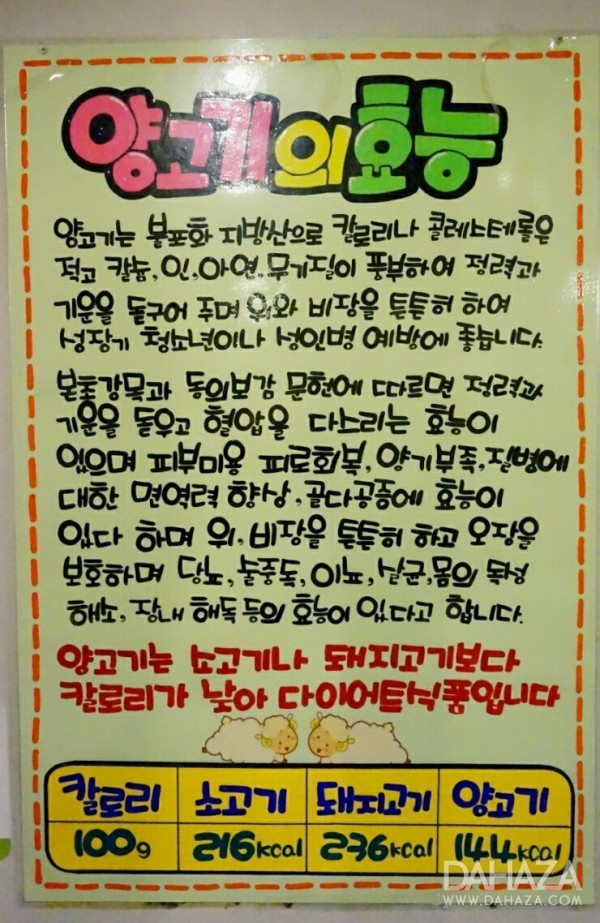 양고기의효능
양고기는 불포화 지방산으로 칼로리나 콜레스테롤은
적고 칼슘,인,아연,무기질이 풍부하여 정력과
기운을 돋구어 주며 위와 비장을 튼튼히 하여
성장기 청소년이나 성인병 예방에 좋습니다.
본초강목과 동의보감 문헌에 따르면 정력과
기운을 돋우고 혈압을 다스리는 효능이
있으며 피부미용 피로회복,양기부족,질병에
대한 면역력 향상,골다공증에 효능이
있다 하며 위,비장을 튼튼히 하고 오장을
보호하며 당뇨,술중독,이뇨,살균,몸의 독성
해소, 장내 해독 등의 효능이 있다고 합니다.
양고기는 소고기나 돼지고기보다
칼로리가 낮아 다이어트식품입니다
칼로리 소고기 돼지고기 양고기
100g 216kcal 236kcal 144kcal
DAHAZA
WWW.DAHAZA.COM